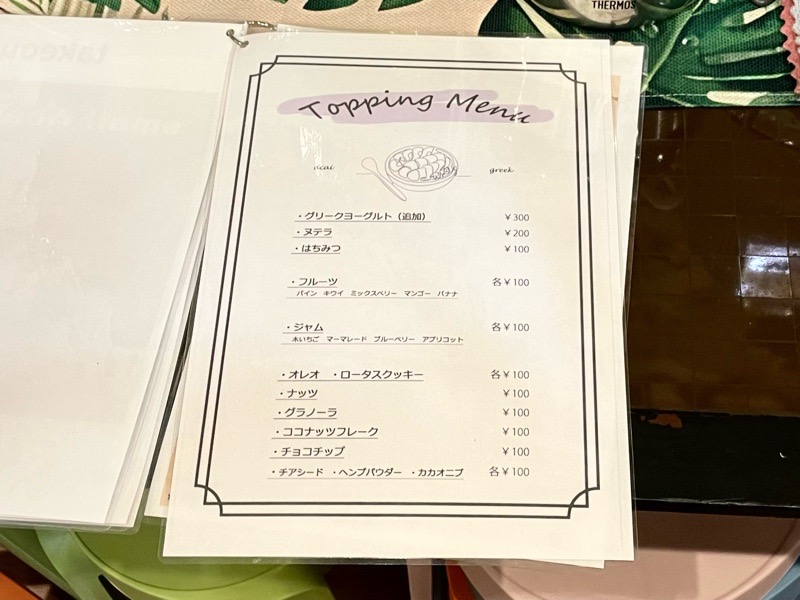 THERMOS
takeou
Topping Menu
acai
greek
・グリークヨーグルト（追加） ￥300
・ヌテラ ￥200
・はちみつ ￥100
・フルーツ 各￥100
パイン キウイ ミックスベリー マンゴー バナナ
・ジャム 各￥100
木いちご マーマレード ブルーベリー アプリコット
・オレオ ・ロータスクッキー 各￥100
・ナッツ ￥100
・グラノーラ ￥100
・ココナッツフレーク ￥100
・チョコチップ ￥100
・チアシード ・ヘンプパウダー ・カカオニブ 各￥100